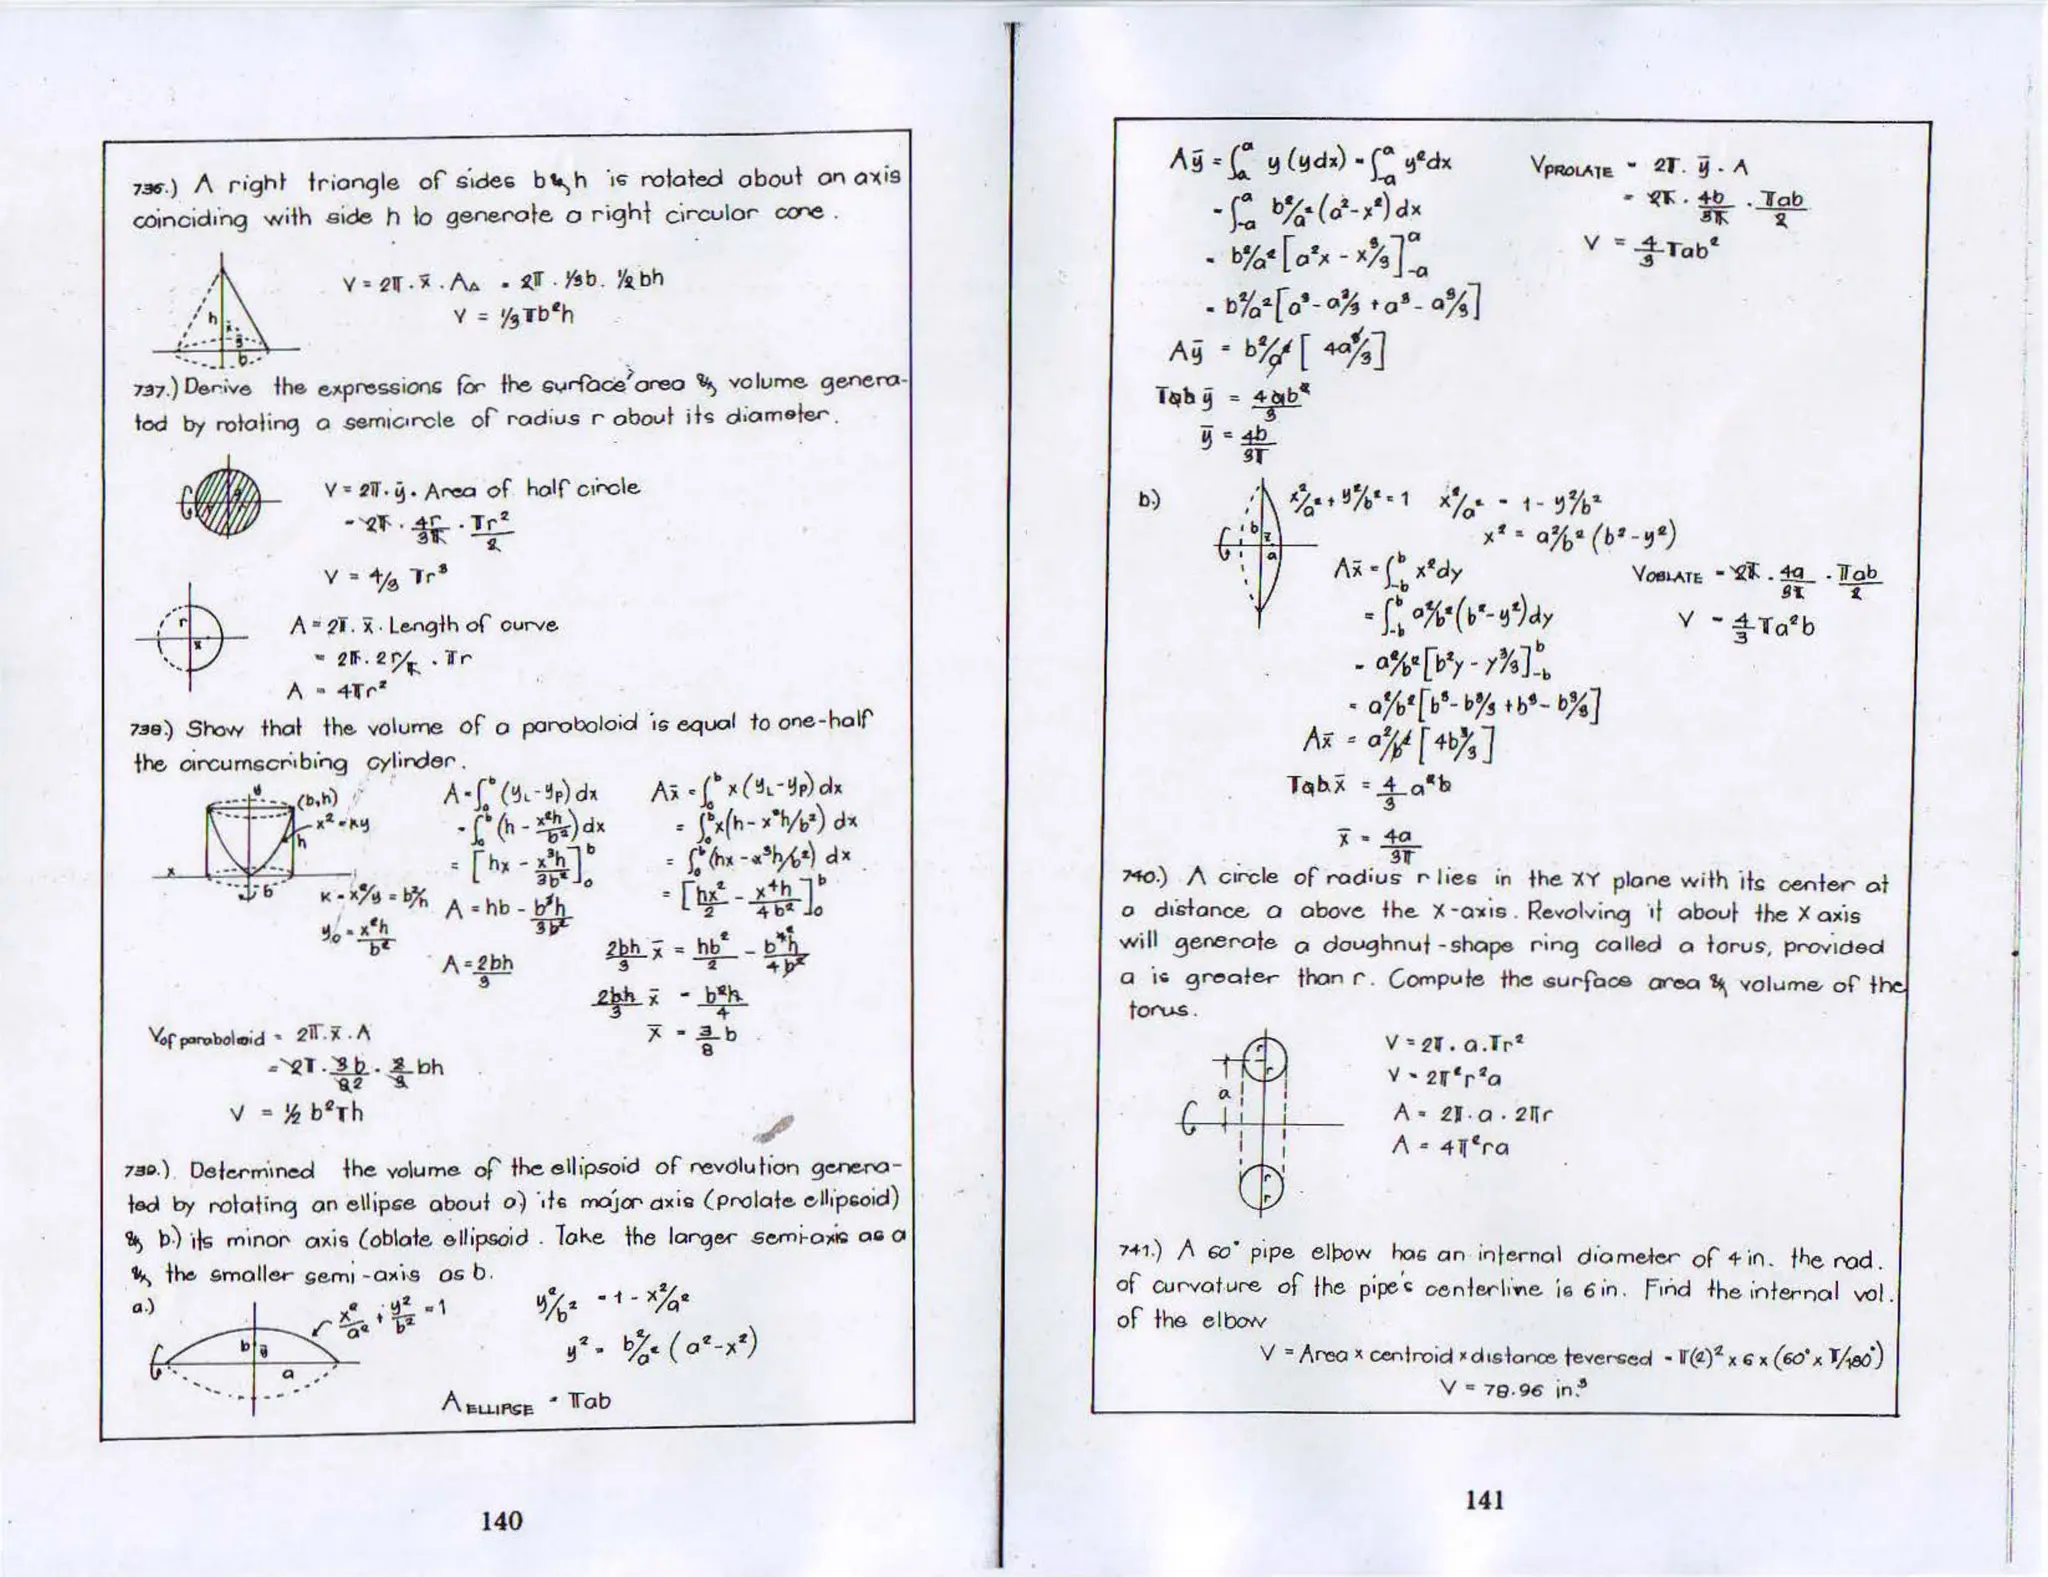 736.) A right triangle of sides b & h is rotated about an axis
coinciding with side h to generate a right circular cone.
h
x̄
b/3
b
V = 2π . x̄ . A△ = 2π . 1/3b . 1/2 bh
V = 1/3 πb²h
737.) Derive the expressions for the surface area & volume genera-
ted by rotating a semicircle of radius r about its diameter.
V = 2π . ȳ . Area of half circle
= 2π . 4r/3π . πr²/2
V = 4/3 πr³
r
x
A = 2π . x̄ . Length of curve
= 2π . 2r/π . πr
A = 4πr²
738.) Show that the volume of a paraboloid is equal to one-half
the circumscribing cylinder.
y
(b,h)
x² = ky
h
x
b
K = x²/y = b²/h
yₚ = x²h/b²
A = ∫₀ᵇ (y_L - y_P) dx
= ∫₀ᵇ (h - x²h/b²) dx
= [hx - x³h/3b²]₀ᵇ
A = hb - b³h/3b²
A = 2bh/3
Ax̄ = ∫₀ᵇ x (y_L - y_P) dx
= ∫₀ᵇ x(h - x²h/b²) dx
= ∫₀ᵇ (hx - x³h/b²) dx
= [hx²/2 - x⁴h/4b²]₀ᵇ
2bh/3 x̄ = hb²/2 - b⁴h/4b²
2bh/3 x̄ = b²h/4
x̄ = 3/8 b
V of paraboloid = 2π . x̄ . A
= 2π . 3b/8 . 2/3 bh
V = 1/2 b²πh
739.) Determined the volume of the ellipsoid of revolution genera-
ted by rotating an ellipse about a) its major axis (prolate ellipsoid)
& b.) its minor axis (oblate ellipsoid . Take the larger semi-axis as a
& the smaller semi-axis as b.
a.)
x²/a² + y²/b² = 1
b ȳ
a
y²/b² = 1 - x²/a²
y² = b²/a² (a² - x²)
A ELLIPSE = πab
140
Aȳ = ∫₋ₐᵃ y (ydx) = ∫₋ₐᵃ y²dx
= ∫₋ₐᵃ b²/a² (a² - x²) dx
= b²/a² [a²x - x³/3]₋ₐᵃ
= b²/a² [a³ - a³/3 + a³ - a³/3]
Aȳ = b²/a² [4a³/3]
πab ȳ = 4ab²/3
ȳ = 4b/3π
V PROLATE = 2π . ȳ . A
= 2π . 4b/3π . πab/2
V = 4/3 πab²
b.)
b
x̄
a
x²/a² + y²/b² = 1 x²/a² = 1 - y²/b²
x² = a²/b² (b² - y²)
Ax̄ = ∫₋bᵇ x²dy
= ∫₋bᵇ a²/b² (b² - y²) dy
= a²/b² [b²y - y³/3]₋bᵇ
= a²/b² [b³ - b³/3 + b³ - b³/3]
Ax̄ = a²/b² [4b³/3]
πab x̄ = 4/3 a²b
x̄ = 4a/3π
V OBLATE = 2π . 4a/3π . πab/2
V = 4/3 πa²b
740.) A circle of radius r lies in the XY plane with its center at
a distance a above the X-axis. Revolving it about the X axis
will generate a doughnut-shape ring called a torus, provided
a is greater than r. Compute the surface area & volume of the
torus.
r
r
a
r
r
V = 2π . a . πr²
V = 2π²r²a
A = 2π . a . 2πr
A = 4π²ra
741.) A 60° pipe elbow has an internal diameter of 4 in. the rad.
of curvature of the pipe's centerline is 6 in. Find the internal vol.
of the elbow
V = Area x centroid x distance teversed = π(2)² x 6 x (60° x π/180°)
V = 78.96 in.³
141